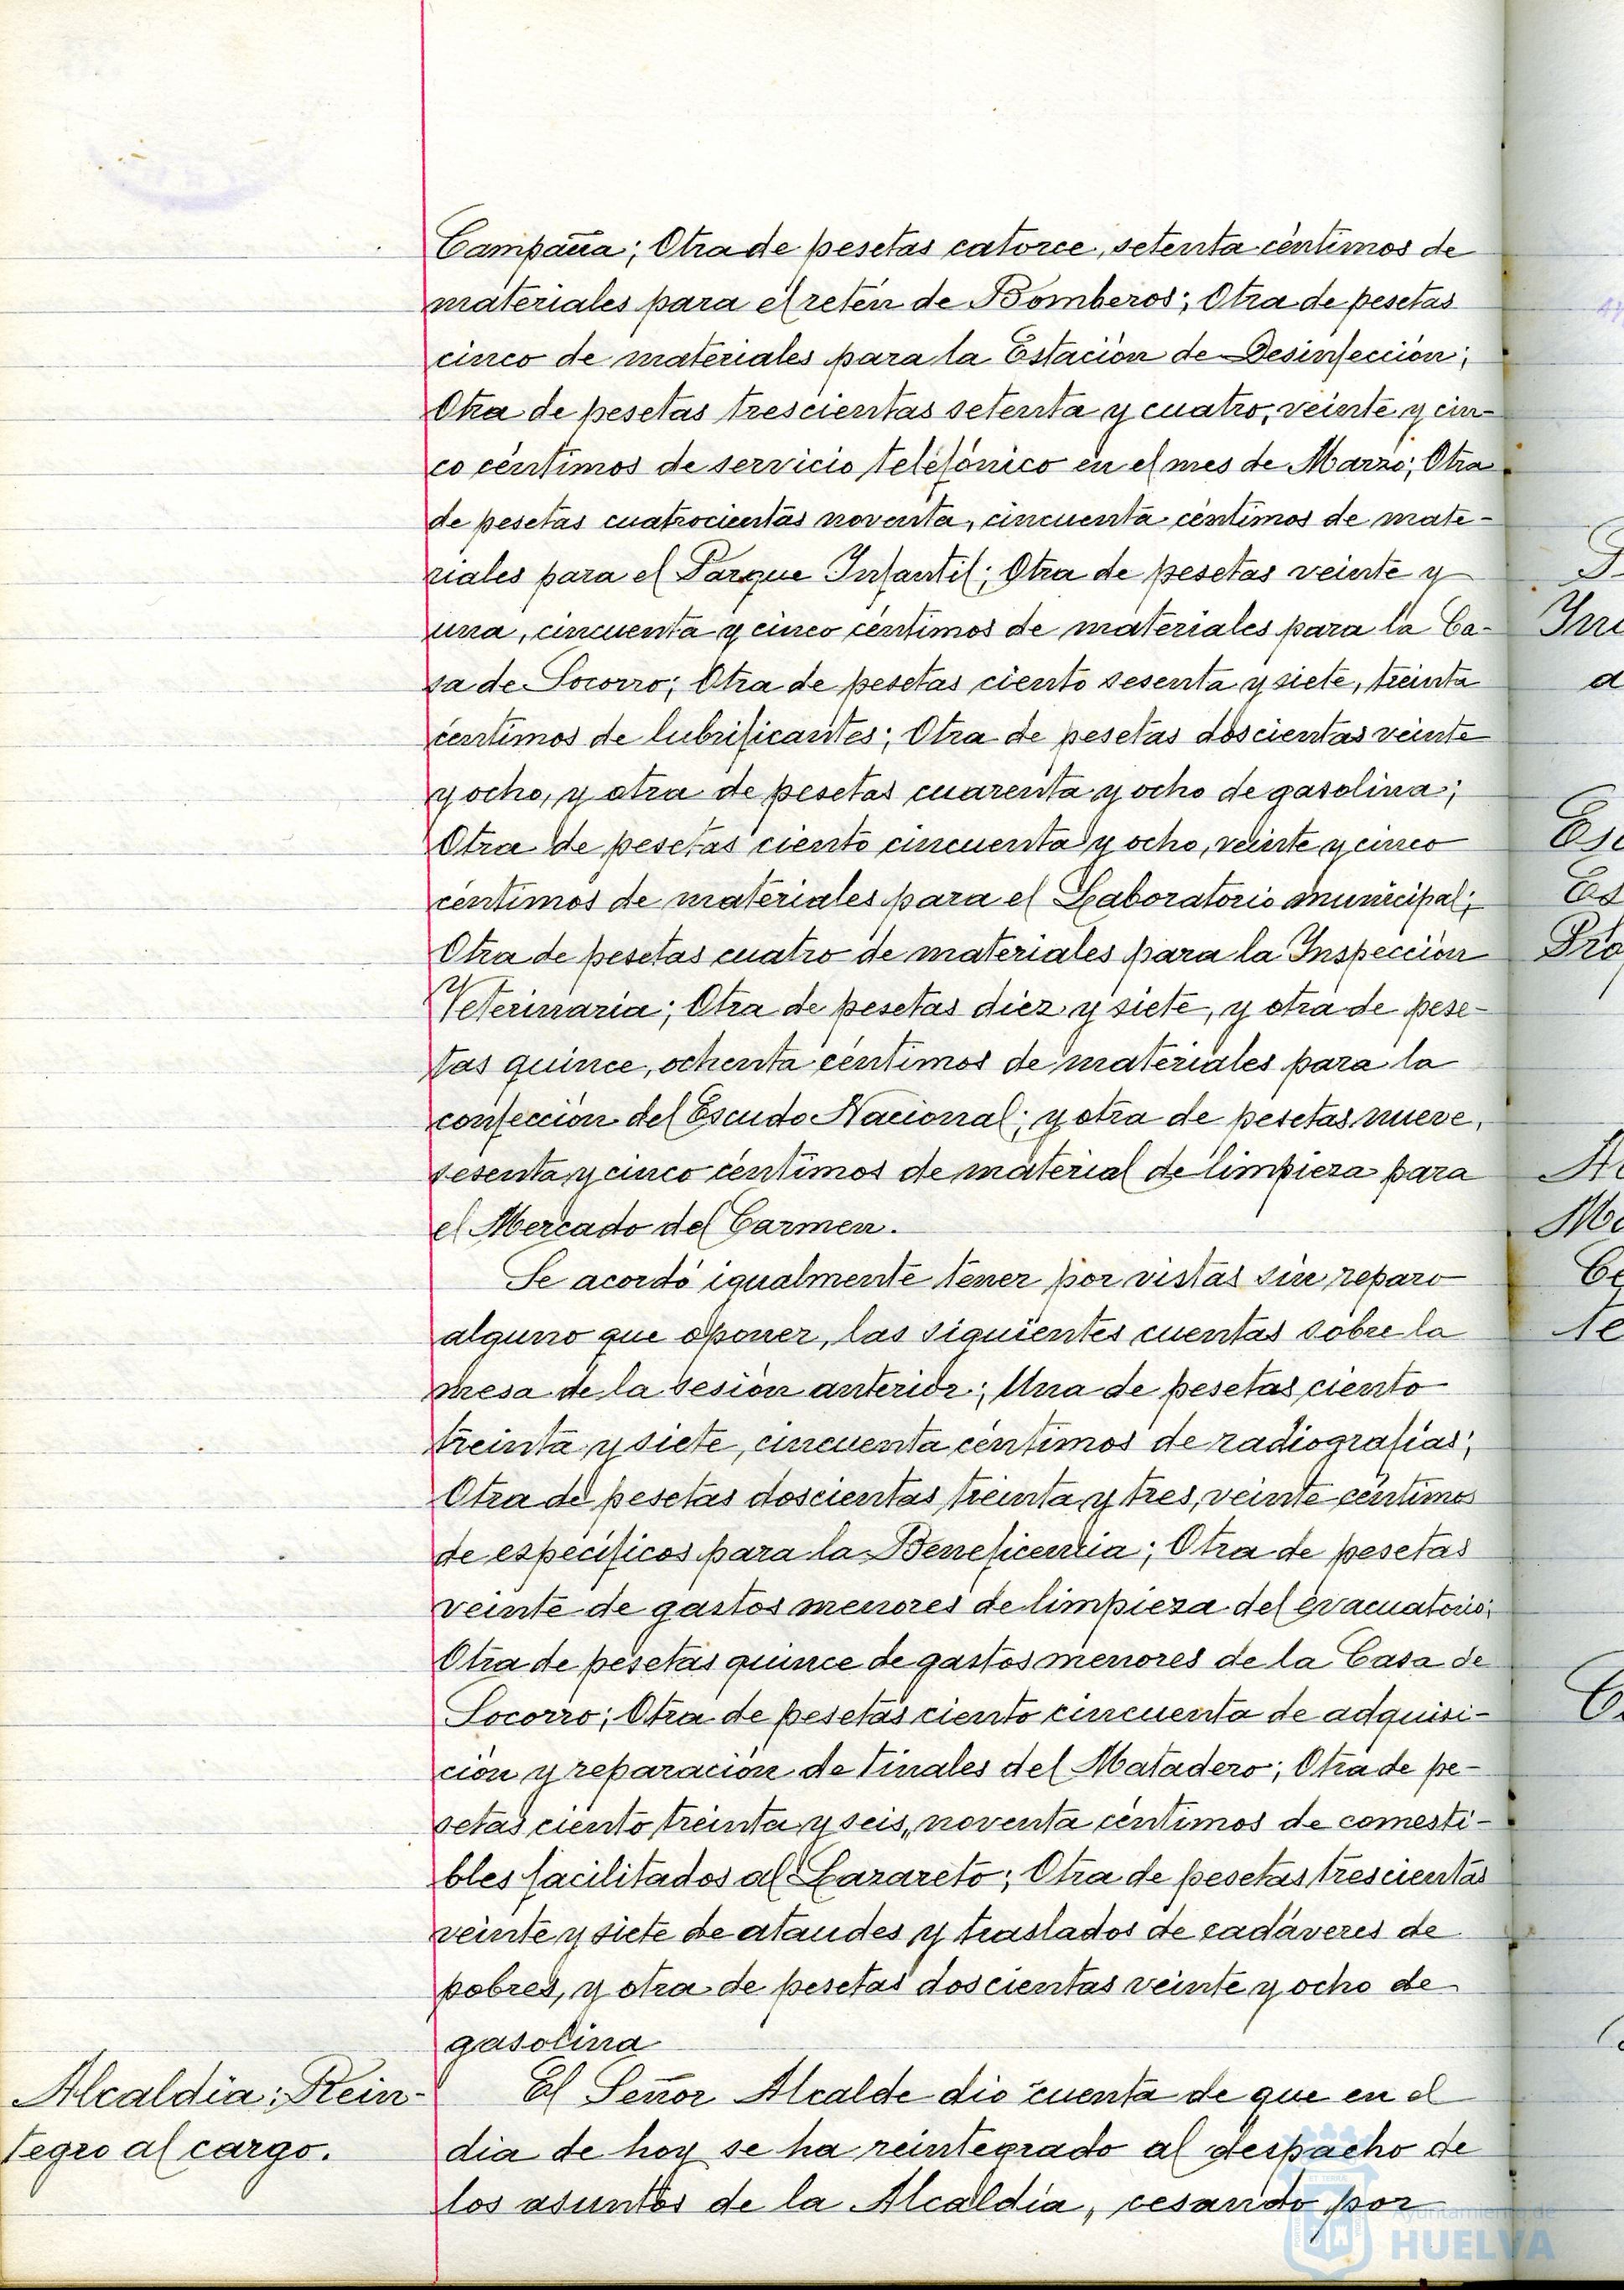 Campaña; Otra de pesetas catorce, setenta céntimos de
materiales para el retén de Bomberos; Otra de pesetas
cinco de materiales para la Estación de Desinfección;
Otra de pesetas trescientas setenta y cuatro, veinte y cin-
co céntimos de servicio telefónico en el mes de Marzo; Otra
de pesetas cuatrocientas noventa, cincuenta céntimos de mate-
riales para el Parque Infantil; Otra de pesetas veinte y
una, cincuenta y cinco céntimos de materiales para la Ca-
sa de Socorro; Otra de pesetas ciento sesenta y siete, treinta
centimos de lubrificantes; Otra de pesetas doscientas veinte
y ocho, y otra de pesetas cuarenta y ocho de gasolina;
Otra de pesetas ciento cincuenta y ocho, veinte y cinco
centimos de materiales para el Laboratorio municipal;
Otra de pesetas cuatro de materiales para la Inspección
Veterinaria; Otra de pesetas diez y siete, y otra de pese-
tas quince, ochenta céntimos de materiales para la
confección del Escudo Nacional; y otra de pesetas nueve,
sesenta y cinco centimos de material de limpieza para
el Mercado del Carmen.
Se acordó igualmente tener por vistas sin reparo
alguno que oponer, las siguientes cuentas sobre la
mesa de la sesión anterior; Una de pesetas ciento
treinta y siete, cincuenta céntimos de radiografías;
Otra de pesetas doscientas treinta y tres, veinte céntimos
de específicos para la Beneficencia; Otra de pesetas
veinte de gastos menores de limpieza del evacuatorio;
Otra de pesetas quince de gastos menores de la Casa de
Socorro; Otra de pesetas ciento cincuenta de adquisi-
ción y reparación de tinales del Matadero; Otra de pe-
setas ciento treinta y seis, noventa céntimos de comesti-
bles facilitados al Lazareto; Otra de pesetas trescientas
veinte y siete de ataudes y traslados de cadáveres de
pobres, y otra de pesetas doscientas veinte y ocho de
gasolina
Alcaldia: Rein-
tegro al cargo.
El Señor Alcalde dio cuenta de que en el
dia de hoy se ha reintegrado al despacho de
los asuntos de la Alcaldía, cesando por
Ayuntamiento de
HUELVA